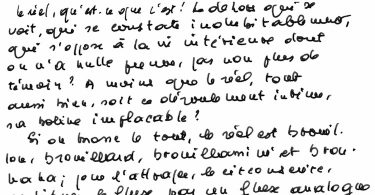 Le réel, qu'est-ce que c'est ? Le dehors qui se
voit, qui se constate indubitablement,
qui s'oppose à la vie intérieure dont
on n'a nulle preuve, pas non plus de
témoin ? A moins que le réel, tout
aussi bien, soit ce déroulement intime,
sa bobine implacable ?
Si on brasse le tout, le réel est brouil-
lon, brouillard, brouillamini et brou-
haha ; pour l'attraper, le circonscrire,
le flux par un flux analogue